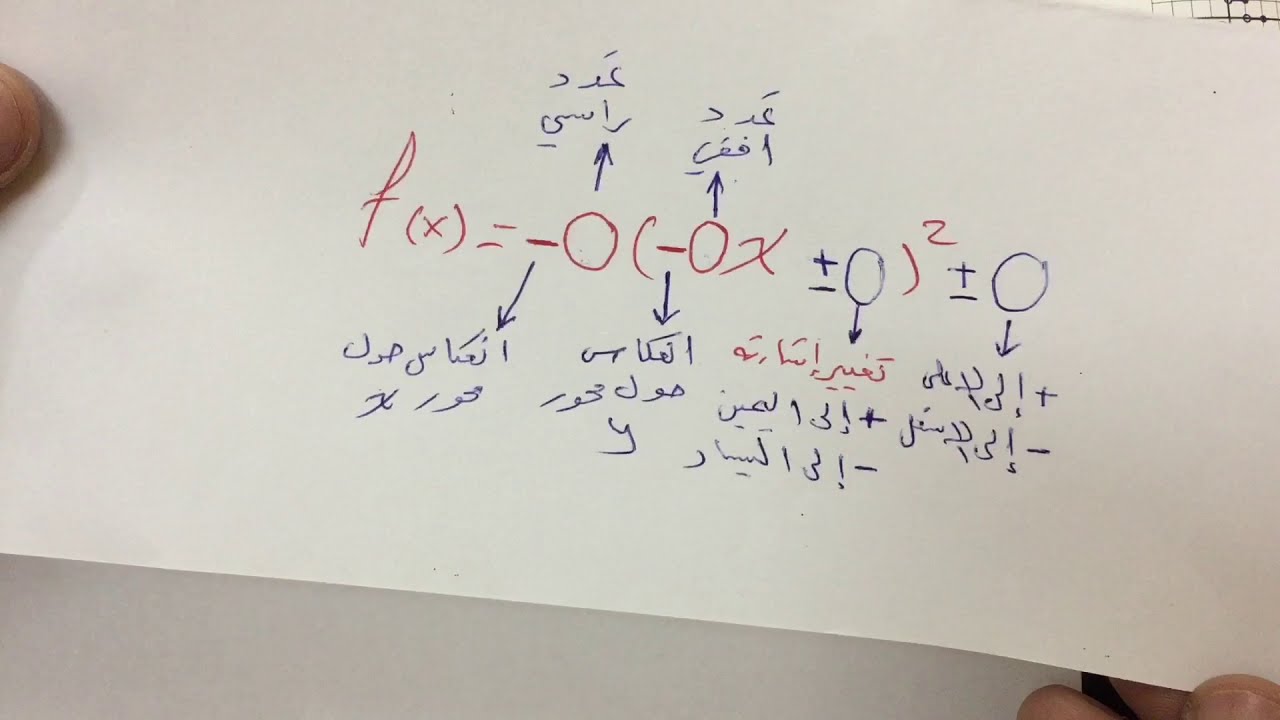 عَدد
راسي
عَدد
افقي
f(x) = -O(-Ox ± O)² ± O
انعكاس حول
محور x
انعكاس
حول محور
y
تغيير إشارته
+ إلى اليمين
- إلى اليسار
+ إلى الاعلى
- إلى الاسفل